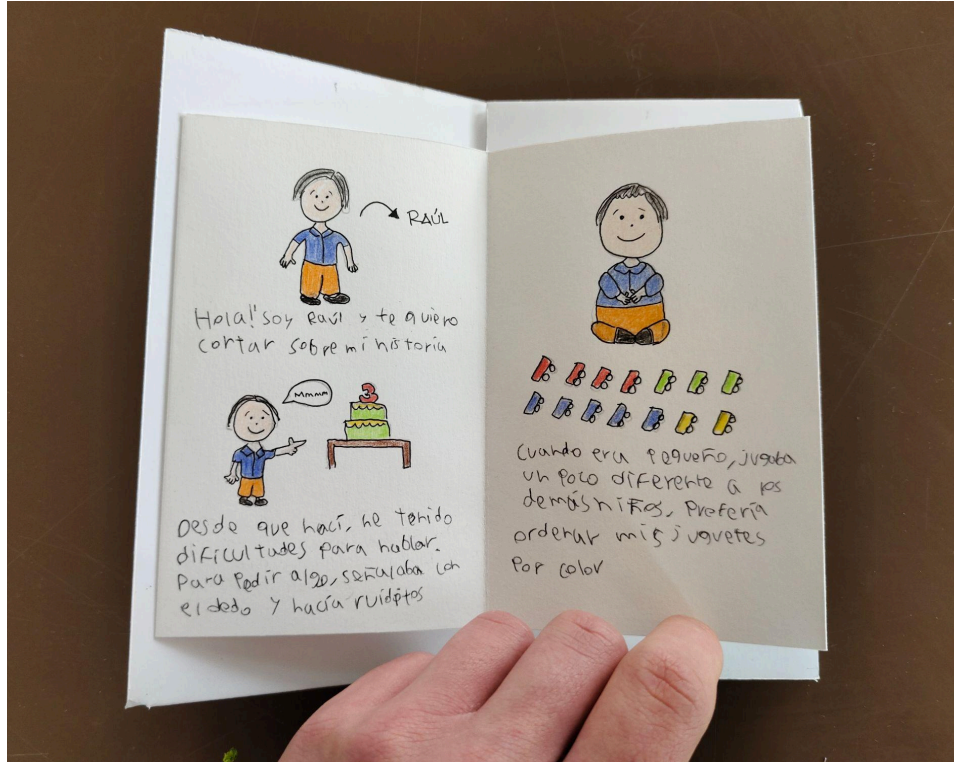 RAÚL
Hola! soy Raúl y te quiero
contar sobre mi historia
Mmmm
3
Desde que nací, he tenido
dificultades para hablar.
Para Pedir algo, señalaba con
el dedo y hacía ruiditos
Cuando era Pequeño, jugaba
un Poco diferente a los
demás niños, Prefería
ordenar mis juguetes
Por color